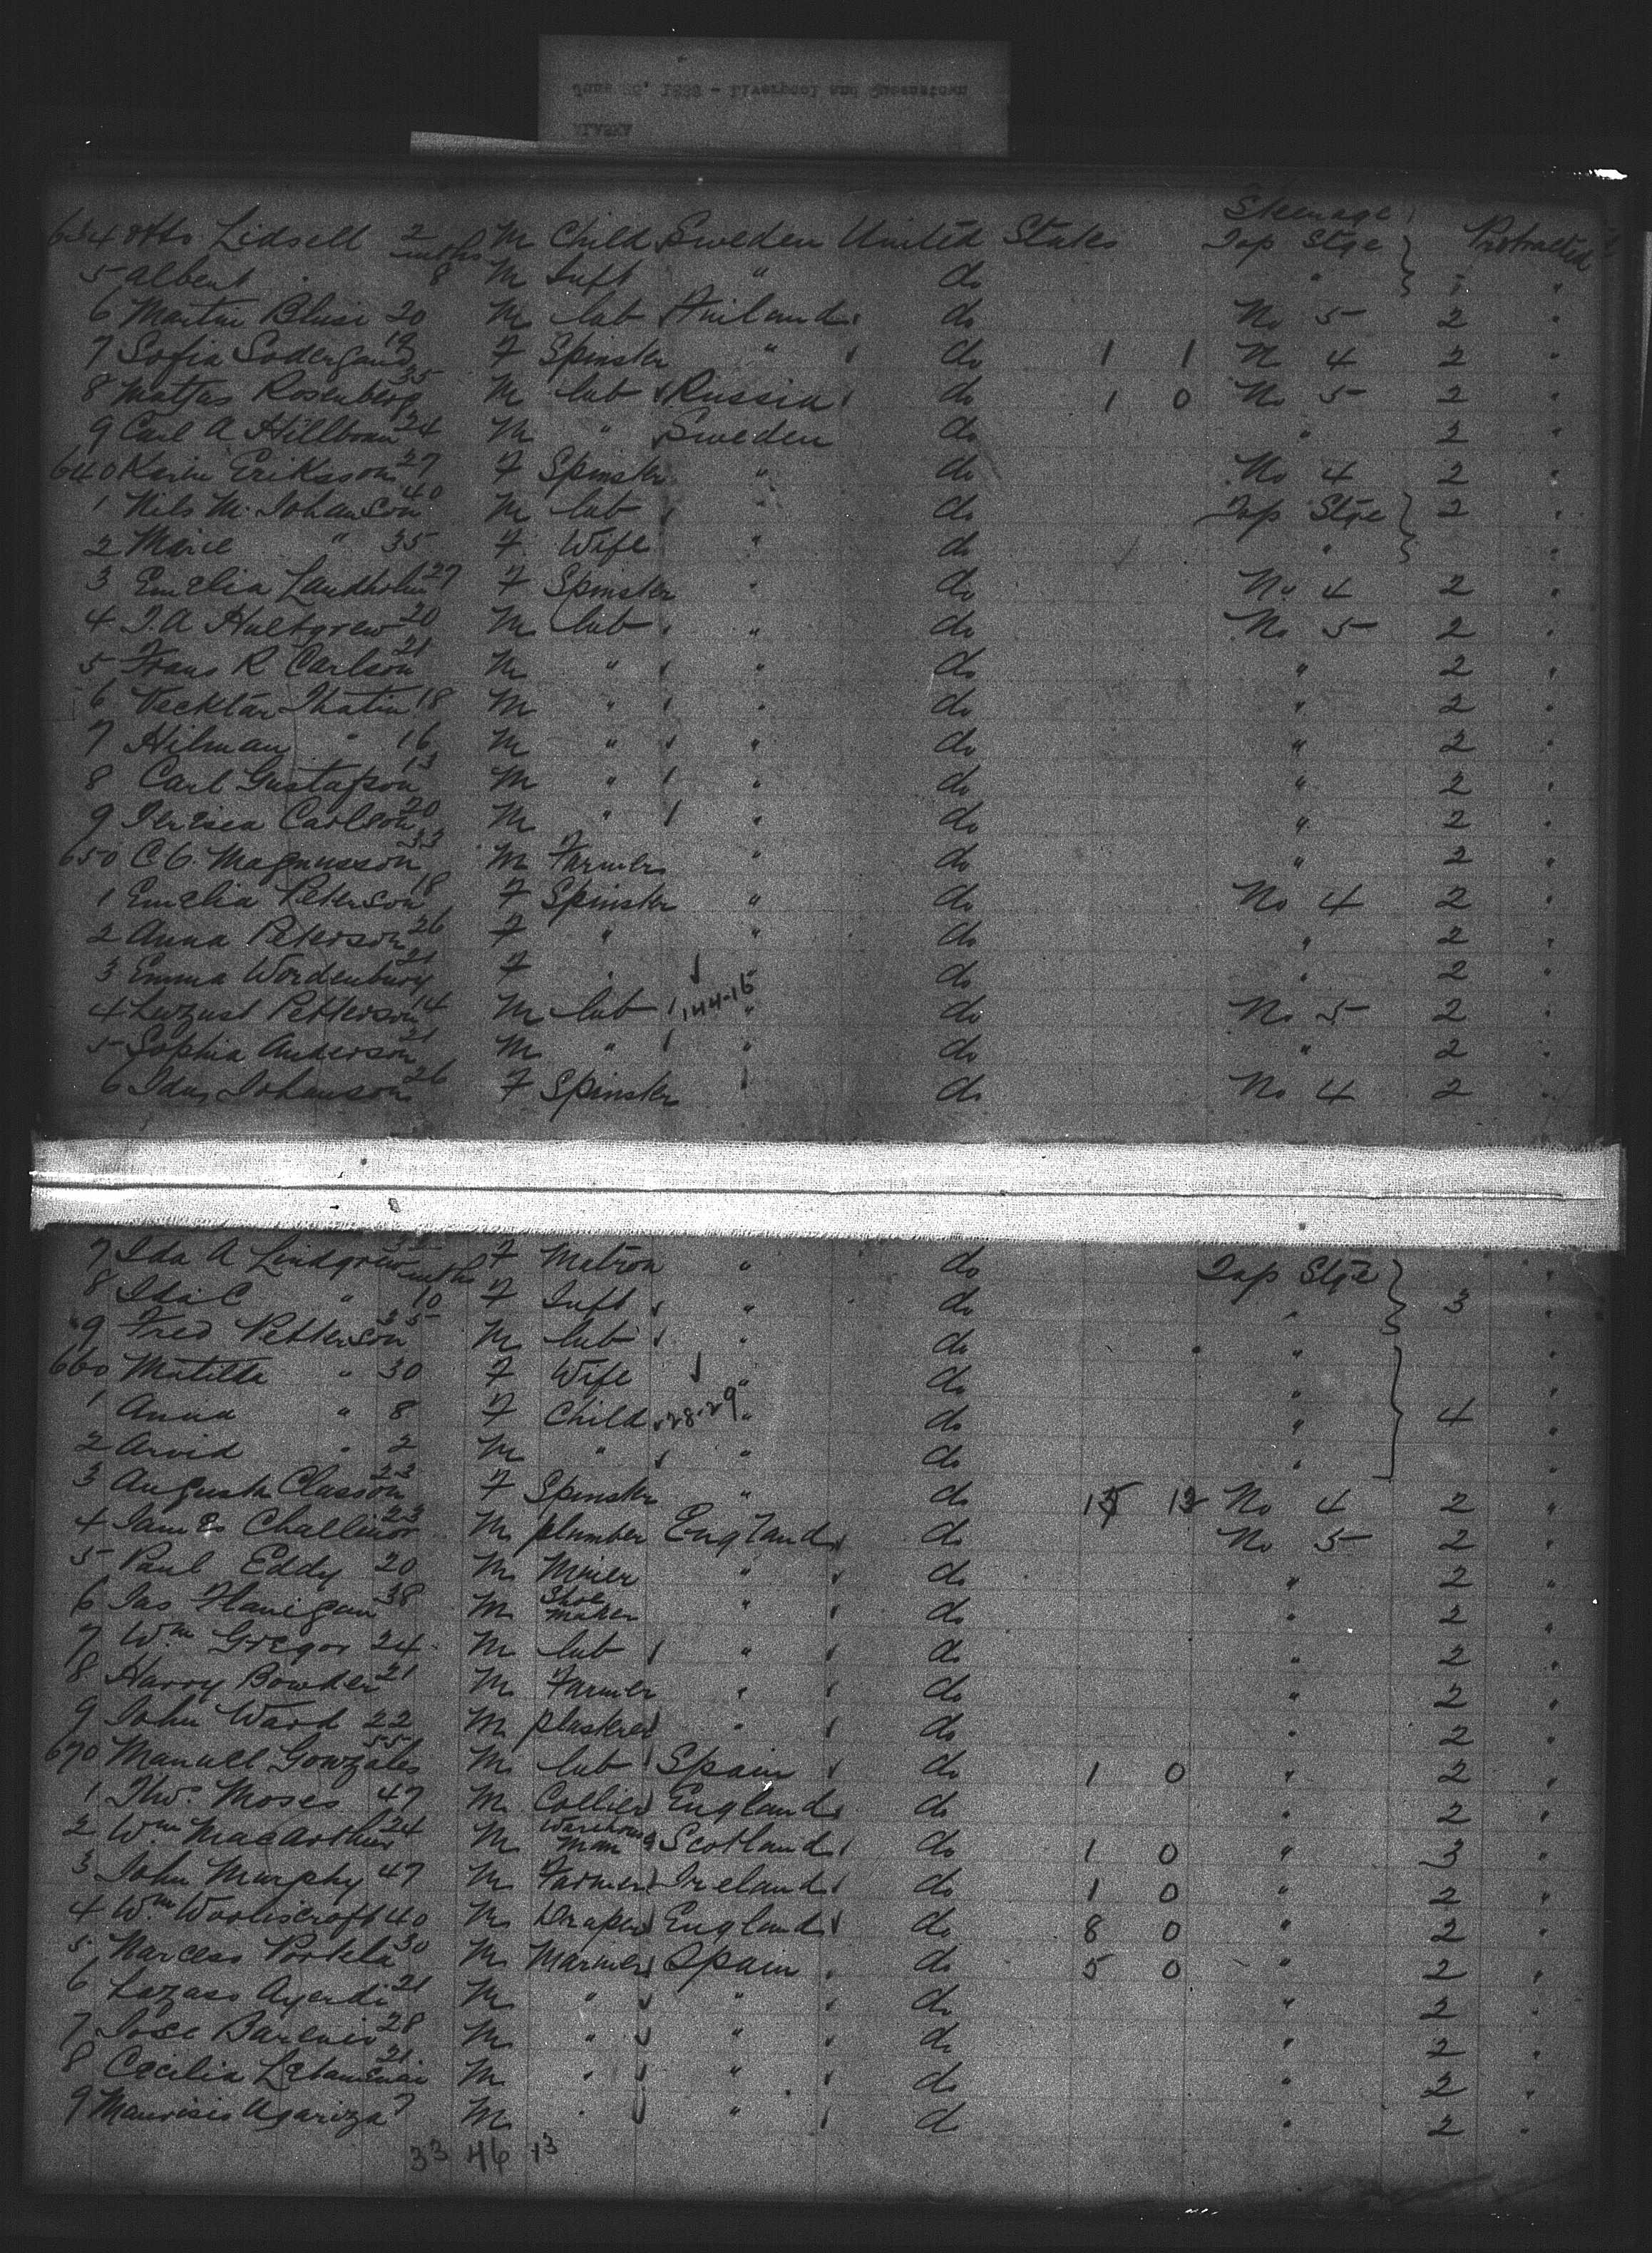 ALASKA
June 20, 1888 - Liverpool and Queenstown
Steerage
634 Otto Lidsell 2 M Child Sweden United States Tap Stge Protracted
5 Albert " mths 8 M Inft " do " "
6 20 M lab Finland do No 5 2 "
7 Sofia 19 F Spinster " do 1 1 No 4 2 "
8 Mattas Rosenberg 35 M lab Russia do 1 0 No 5 2 "
9 Carl A Hillbom 24 M " Sweden do " 2 "
640 Karin Eriksson 27 F Spinster " do No 4 2 "
1 Nils M. Johanson 40 M lab " do Tap Stge 2 "
2 Marie " 35 F Wife " do " "
3 Emelia Landholm 27 F Spinster " do No 4 2 "
4 J.A Hultgrew 20 M lab " do No 5 2 "
5 Frans R Carlson 21 M " " do " 2 "
6 18 M " " do " 2 "
7 Hilman " 16 M " " do " 2 "
8 Carl Gustafson 13 M " " do " 2 "
9 Carlson 20 M " " do " 2 "
650 C G. Magnusson 33 M Farmer " do " 2 "
1 Emelia Peterson 18 F Spinster " do No 4 2 "
2 Anna Peterson 26 F " " do " 2 "
3 Emma Wordenburg 21 F " " do " 2 "
4 Petterson 14 M lab 144-16 " do No 5 2 "
5 Sophia Anderson 21 M " " do " 2 "
6 Ida Johanson 26 F Spinster do No 4 2 "
7 Ida A Lindgrew F Matron " do Tap Stge "
8 Ida C " mths 10 F Inft " do " 3 "
9 Fred Petterson 35 M lab " do " "
660 Matilda " 30 F Wife " do " "
1 Anna " 8 F Child 28-29 " do " 4 "
2 Arvid " 2 M " " do " "
3 Augusta Classon 23 F Spinster " do No 4 2 "
4 James Challinor 23 M plumber England do No 5 2 "
5 Paul Eddy 20 M Minier " do " 2 "
6 Jas Flanigan 38 M Shoe maker " do " 2 "
7 Wm Gregor 24 M lab " do " 2 "
8 Harry Bowden 21 M Farmer " do " 2 "
9 John Ward 22 M plasterer " do " 2 "
670 Manuel Gonzales 55 M lab Spain do 1 0 " 2 "
1 Tho. Moses 47 M Collier England do " 2 "
2 Wm MacArthur 24 M Warehouse man Scotland do 1 0 " 3 "
3 John Murphy 47 M Farmer Ireland do 1 0 " 2 "
4 Wm Wooliscroft 40 M Draper England do 8 0 " 2 "
5 Narcess Portela 30 M Mariner Spain do 5 0 " 2 "
6 Lazaso Ayerdi 21 M " " do " 2 "
7 Jose 28 M " " do " 2 "
8 Cecilia 21 M " " do " 2 "
9 Agariza M " " do " 2 "
33 46 13